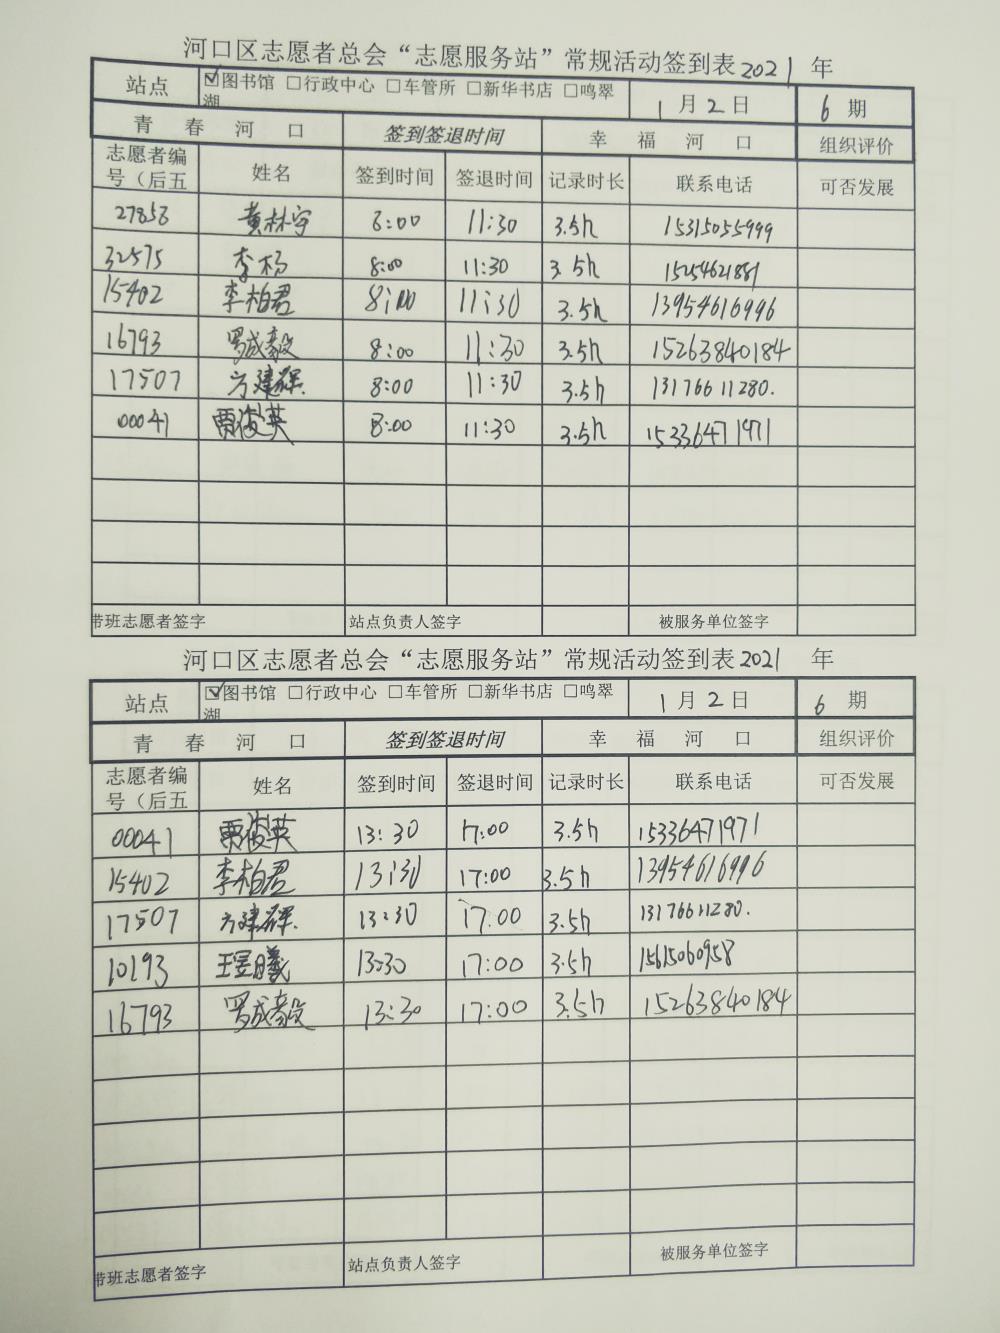 河口区志愿者总会“志愿服务站”常规活动签到表2021 年
站点 ☑图书馆 □行政中心 □车管所 □新华书店 □鸣翠湖 1月2日 6期
青春河口 签到签退时间 幸福河口 组织评价
志愿者编号（后五 姓名 签到时间 签退时间 记录时长 联系电话 可否发展
27858 黄林宇 8:00 11:30 3.5h 15315055999
32575 李杨 8:00 11:30 3.5h 15254621881
15402 李柏君 8:00 11:30 3.5h 13954616996
16793 罗成毅 8:00 11:30 3.5h 15263840184
17507 方建群 8:00 11:30 3.5h 13176611280.
00041 贾俊英 8:00 11:30 3.5h 15336471971
带班志愿者签字 站点负责人签字 被服务单位签字
河口区志愿者总会“志愿服务站”常规活动签到表2021 年
站点 ☑图书馆 □行政中心 □车管所 □新华书店 □鸣翠湖 1月2日 6期
青春河口 签到签退时间 幸福河口 组织评价
志愿者编号（后五 姓名 签到时间 签退时间 记录时长 联系电话 可否发展
00041 贾俊英 13:30 17:00 3.5h 15336471971
15402 李柏君 13:30 17:00 3.5h 13954616996
17507 方建群 13:30 17:00 3.5h 13176611280.
10193 王昱曦 13:30 17:00 3.5h 15615060958
16793 罗成毅 13:30 17:00 3.5h 15263840184
带班志愿者签字 站点负责人签字 被服务单位签字